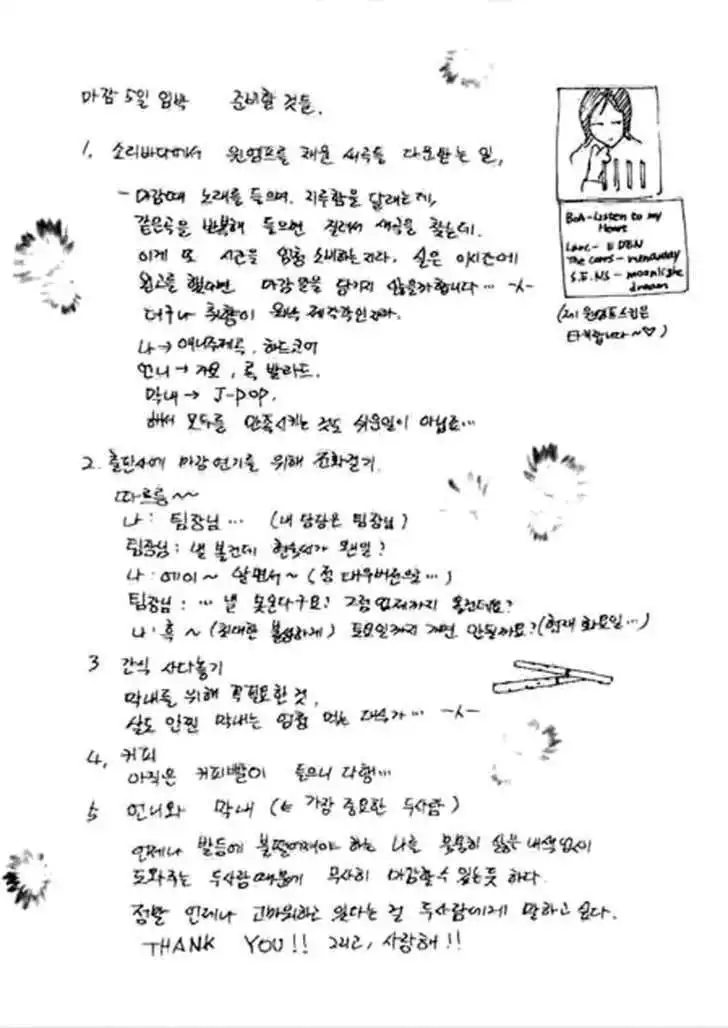 마감 5일 임박 준비할 것들.
1. 소리바다에서 윈엠프를 채울 새곡들 다운받는 일,
- 마감때 노래를 들으며, 지루함을 달래는데,
같은곡을 반복해 들으면 질려서 새곡을 찾는데.
이게 또 시간을 엄청 소비하는지라. 실은 이시간에
원고를 했다면 마감일을 넘기지 않을까합니다… -人-
더구나 취향이 워낙 제각각인지라.
나→애니주제곡, 하드코어
언니→ 가요, 록 발라드.
막내→ J-POP.
해서 모두를 만족시키는 것도 쉬운일이 아닙죠…
2. 출판사에 마감연기를 위해 전화걸기.
따르릉~~
나: 팀장님… (내 담당은 팀장님)
팀장님: 낼 볼건데 현숙씨가 웬일?
나: 에이~ 알면서~ (점 매우버전으로…)
팀장님: … 낼 못온다구요? 그럼 언제까지 올건데요?
나: 흑~ (최대한 불쌍하게) 토요일까지 가면 안될까요? (현재 화요일…)
3 간식 사다놓기
막내를 위해 꼭 필요한 것,
살도 안찐 막내는 엄청 먹는 대식가… -人-
4, 커피
아직은 커피빨이 들으니 다행…
5 언니와 막내 (← 가장 중요한 두사람)
언제나 발등에 불떨어져야 하는 나를 묵묵히 싫은 내색없이
도와주는 두사람때문에 무사히 마감할수 있는듯 하다.
정말 언제나 고마워하고 있다는 걸 두사람에게 말하고 싶다.
THANK YOU!! 그리고, 사랑해!!
BoA-Listen to my
Heart
Larc- EDEN
The cores-
S.E.NS - moonlight
dream
(고시 윈엠프스킨은
타케입니다~♡)